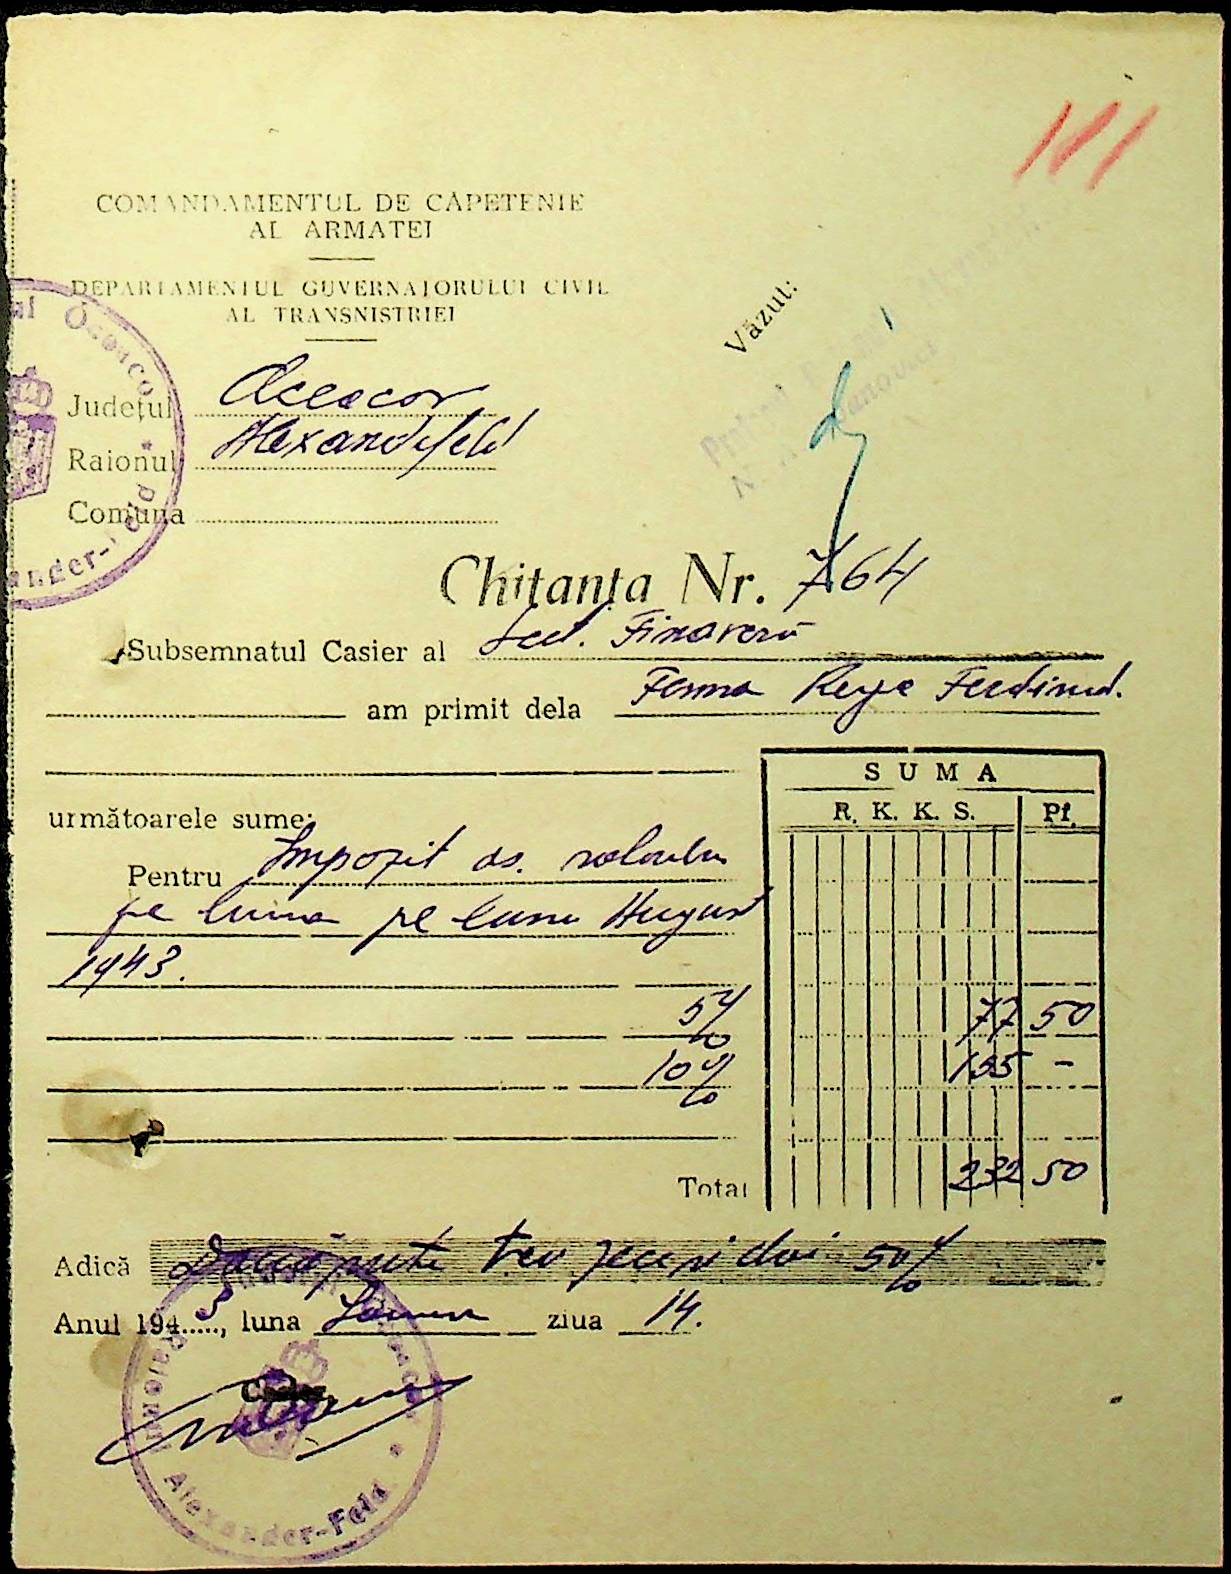 111
COMANDAMENTUL DE CĂPETENIE
AL ARMATEI
DEPARTAMENTUL GUVERNATORULUI CIVIL
AL TRANSNISTRIEI
Văzut:
Județul Oceacov
Raionul Alexanderfeld
Comuna
Chitanța Nr. 764
Subsemnatul Casier al Sect. Financiar
am primit dela Ferma Rege Ferdinand.
SUMA
R. K. K. S. Pf.
următoarele sume:
Pentru Impozit as. salariilor
pe luna pe luna August
1943.
5% 77 50
10% 155 -
Total 232 50
Adică Douăsute treizecișidoi 50%
Anul 1943, luna ziua 14.
Casier
Raionul Alexander-Feld